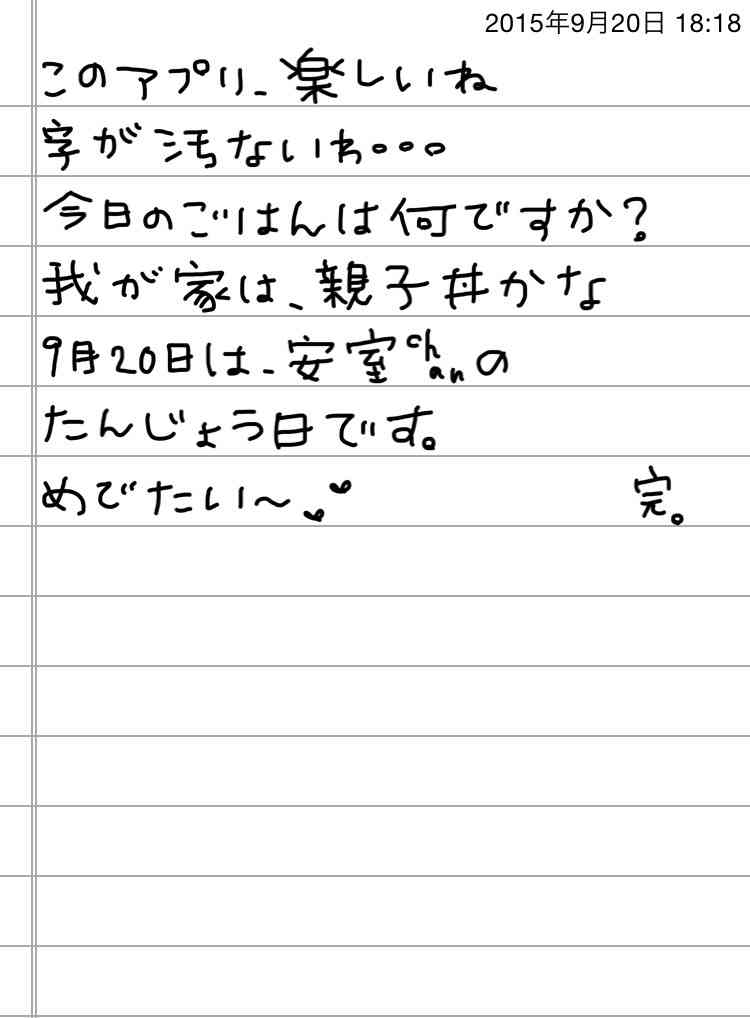 2015年9月20日 18:18
このアプリ、楽しいね
字が汚ないわ。。。
今日のごはんは何ですか？
我が家は、親子丼かな
9月20日は、安室chanの
たんじょう日です。
めでたい〜
完。